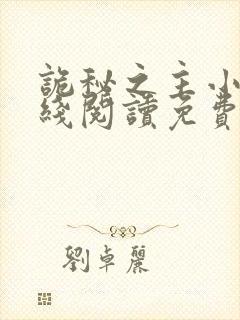 詭秘之主小
綫閱讀免費
劉卓麗